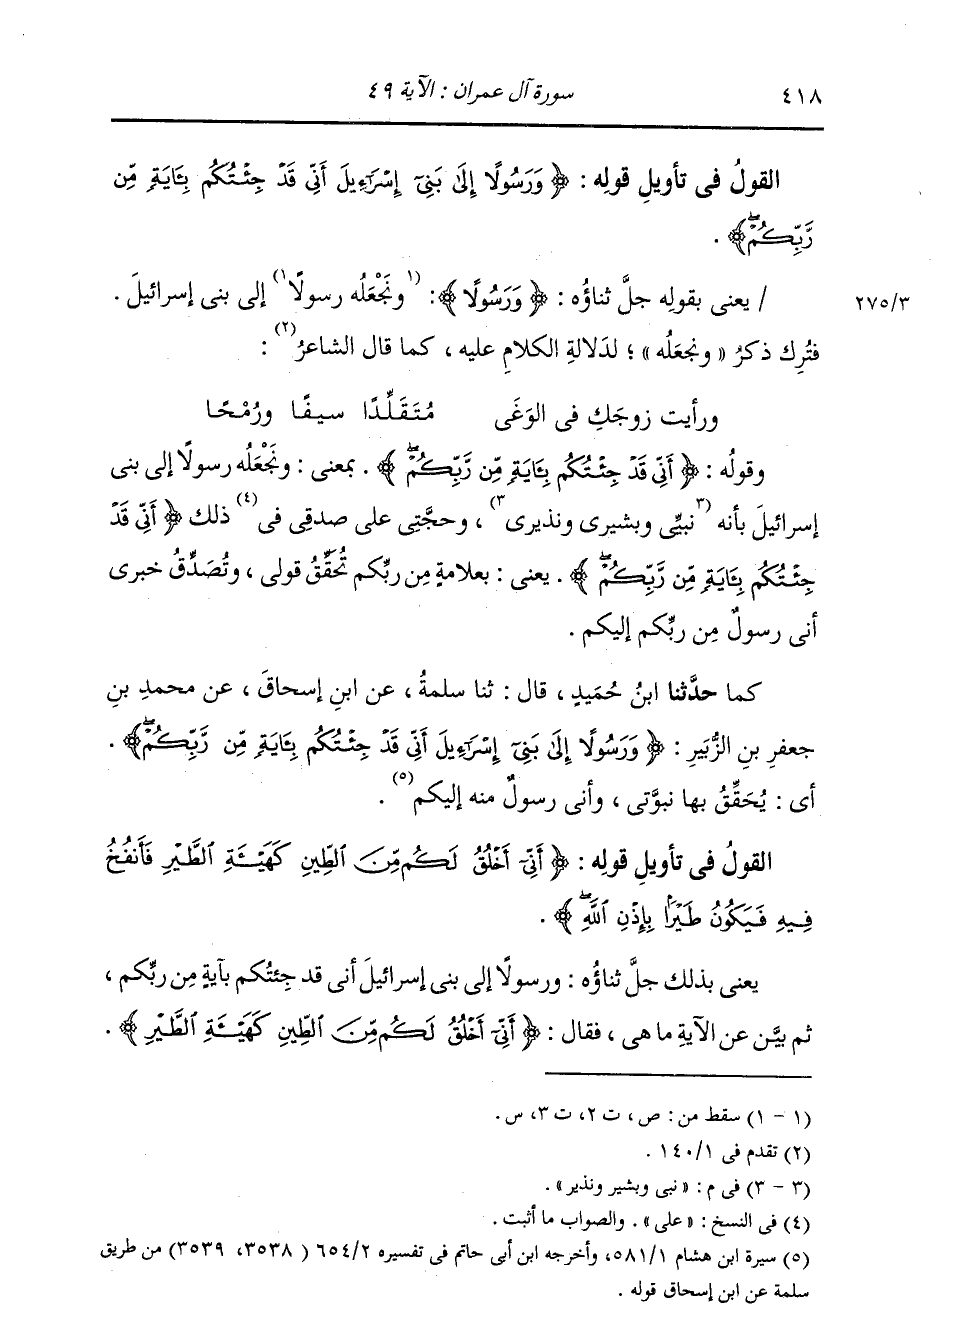 ٤١٨ سورة آل عمران : الآية ٤٩
القولُ فى تأويلِ قولِه : ﴿ وَرَسُولًا إِلَىٰ بَنِىٓ إِسْرَٰٓءِيلَ أَنِّى قَدْ جِئْتُكُم بِـَٔايَةٍ مِّن
رَّبِّكُمْۖ﴾ .
٢٧٥/٣ / يعنى بقولِه جلَّ ثناؤُه : ﴿ وَرَسُولًا ﴾: (١ ونَجْعَلُه رسولًا ١) إلى بنى إسرائيلَ .
فتُرِك ذكرُ « ونجعَلُه » ؛ لدَلالةِ الكلامِ عليه ، كما قال الشاعرُ (٢) :
ورأيت زوجَكِ فى الوَغَى مُتَقَلِّدًا سيفًا ورُمْحًا
وقولُه : ﴿ أَنِّى قَدْ جِئْتُكُم بِـَٔايَةٍ مِّن رَّبِّكُمْۖ ﴾ . بمعنى : ونَجْعَلُه رسولًا إلى بنى
إسرائيلَ بأنه (٣ نبيِّى وبشيرى ونذيرى ٣) ، وحجَّتِى على صدقِى فى (٤) ذلك ﴿ أَنِّى قَدْ
جِئْتُكُم بِـَٔايَةٍ مِّن رَّبِّكُمْۖ ﴾ . يعنى : بعلامةٍ مِن ربِّكم تُحَقِّقُ قولى ، وتُصَدِّقُ خبرى
أنى رسولٌ مِن ربِّكم إليكم .
كما حدَّثنا ابنُ حُمَيدٍ ، قال : ثنا سلمةُ ، عن ابنِ إسحاقَ ، عن محمدِ بنِ
جعفرِ بنِ الزُّبَيرِ : ﴿ وَرَسُولًا إِلَىٰ بَنِىٓ إِسْرَٰٓءِيلَ أَنِّى قَدْ جِئْتُكُم بِـَٔايَةٍ مِّن رَّبِّكُمْۖ﴾ .
أى : يُحَقِّقُ بها نبوَّتى ، وأنى رسولٌ منه إليكم (٥) .
القولُ فى تأويلِ قولِه : ﴿ أَنِّىٓ أَخْلُقُ لَكُم مِّنَ ٱلطِّينِ كَهَيْـَٔةِ ٱلطَّيْرِ فَأَنفُخُ
فِيهِ فَيَكُونُ طَيْرًۢا بِإِذْنِ ٱللَّهِۖ ﴾ .
يعنى بذلك جلَّ ثناؤُه : ورسولًا إلى بنى إسرائيلَ أنى قد جِئتُكم بآيةٍ مِن ربِّكم ،
ثم بيَّن عن الآيةِ ما هى ، فقال : ﴿ أَنِّىٓ أَخْلُقُ لَكُم مِّنَ ٱلطِّينِ كَهَيْـَٔةِ ٱلطَّيْرِ ﴾ .
(١ - ١) سقط من : ص ، ت ٢، ت ٣، س .
(٢) تقدم فى ١٤٠/١ .
(٣ - ٣) فى م : « نبى وبشير ونذير » .
(٤) فى النسخ : « على » . والصواب ما أثبت .
(٥) سيرة ابن هشام ٥٨١/١، وأخرجه ابن أبى حاتم فى تفسيره ٦٥٤/٢ ( ٣٥٣٨، ٣٥٣٩) من طريق
سلمة عن ابن إسحاق قوله .